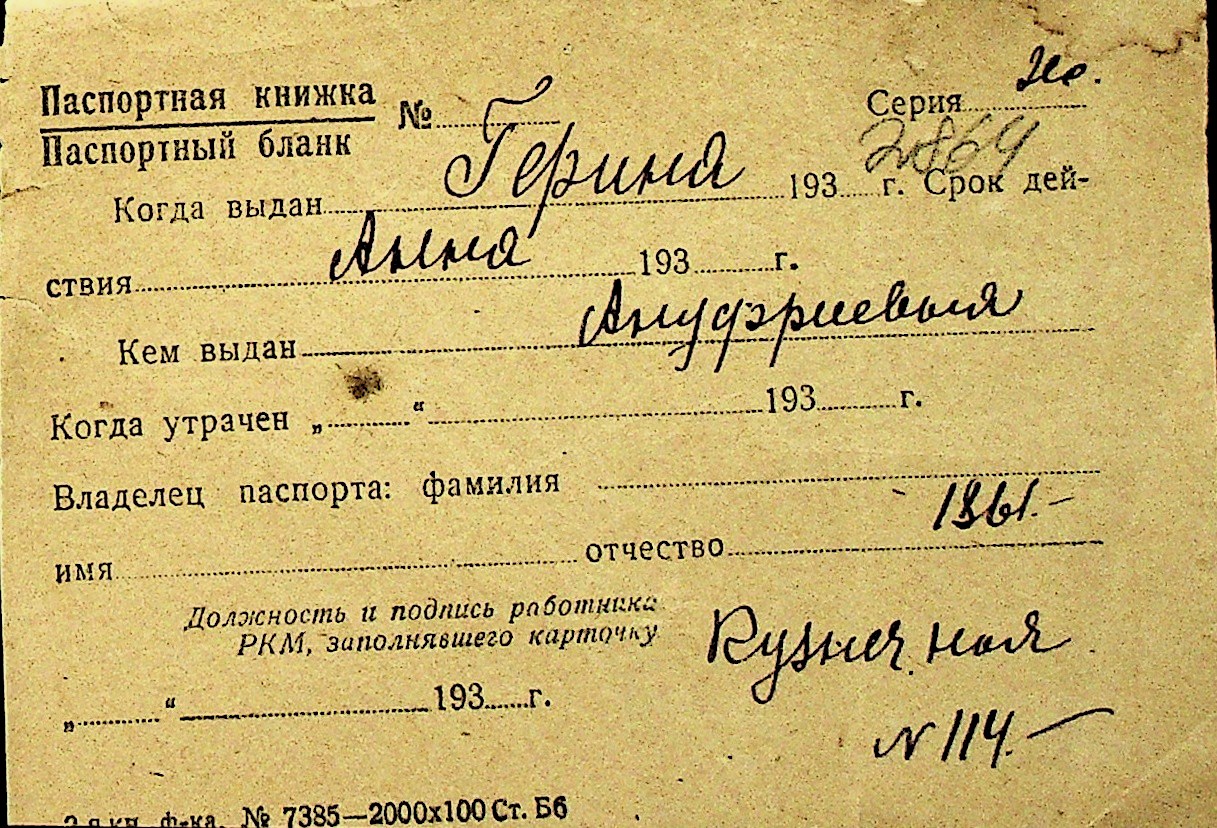 Паспортная книжка № Серия
Паспортный бланк
2869
Герина
Когда выдан 193 г. Срок дей-
Анна
ствия 193 г.
Ануфриевыя
Кем выдан
Когда утрачен „ “ 193 г.
Владелец паспорта: фамилия
1861.-
имя отчество
Должность и подпись работника
РКМ, заполнявшего карточку
Кузнечная
„ “ 193 г.
N 114.-
ф-ка. № 7385—2000х100 Ст. Б6